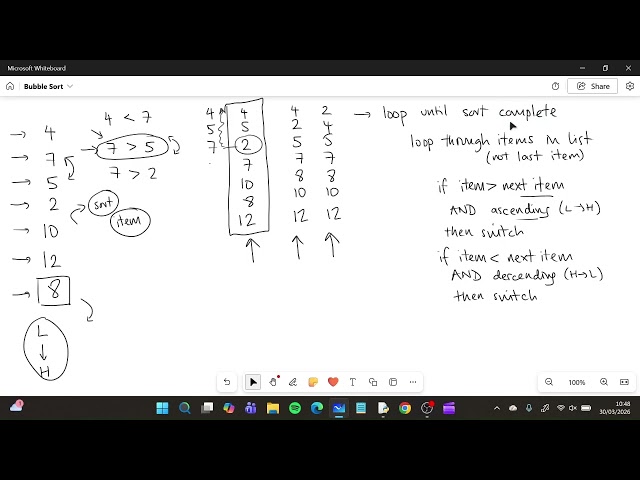 Microsoft Whiteboard
Bubble Sort
Share
4 < 7
→ 4
→ 7
→ 5
→ 2
→ 10
→ 12
→ 8
→ 7 > 5
7 > 2
sort
item
L
↓
H
4
5
7
4
5
2
7
10
8
12
4
2
5
7
8
10
12
2
4
5
7
8
10
12
→ loop until sort complete
loop through items in list
(not last item)
if item > next item
AND ascending (L→H)
then switch
if item < next item
AND descending (H→L)
then switch
100%
10:48
30/03/2026